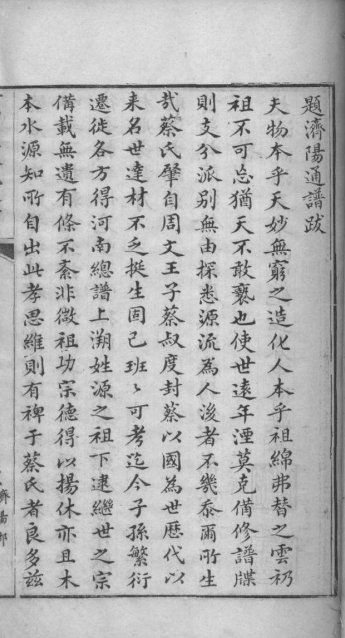 題濟陽通譜跋
夫物本乎天妙無窮之造化人本乎祖綿弗替之雲礽
祖不可忘猶天不敢褻也使世遠年湮莫克備修譜牒
則支分派別無由探悉源流為人後者不幾忝爾所生
哉蔡氏肇自周文王子蔡叔度封蔡以國為世歷代以
来名世達材不乏挺生固已班〻可考迄今子孫繁衍
遷徙各方得河南總譜上溯姓源之祖下逮繼世之宗
備載無遺有條不紊非微祖功宗德得以揚休亦且木
本水源知所自出此孝思維則有裨于蔡氏者良多茲
濟陽郡